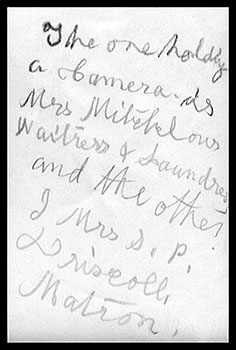 The one holding
a camera is
Mrs Mitchl our
Waitress & Laundress
and the other
I Mrs S. P.
Driscoll,
Matron.